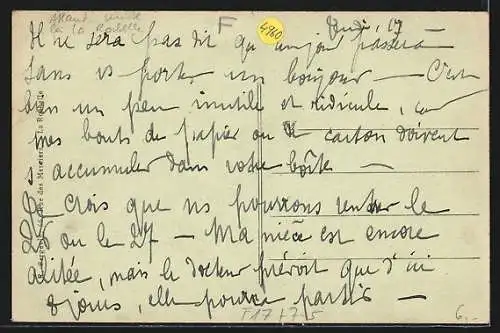 F
4960
17
Il ne sera pas dit qu'un jour passera
sans vs porter un bonjour — C'est
bien un peu inutile et ridicule, car
mes bouts de papier ou de carton doivent
s'accumuler dans votre boîte —
Je crois que ns pourrons rentrer le
26 ou le 27 — Ma nièce est encore
alitée, mais le docteur prévoit que d'ici
8 jours, elle pourra partir —
T17+7-5
6.-